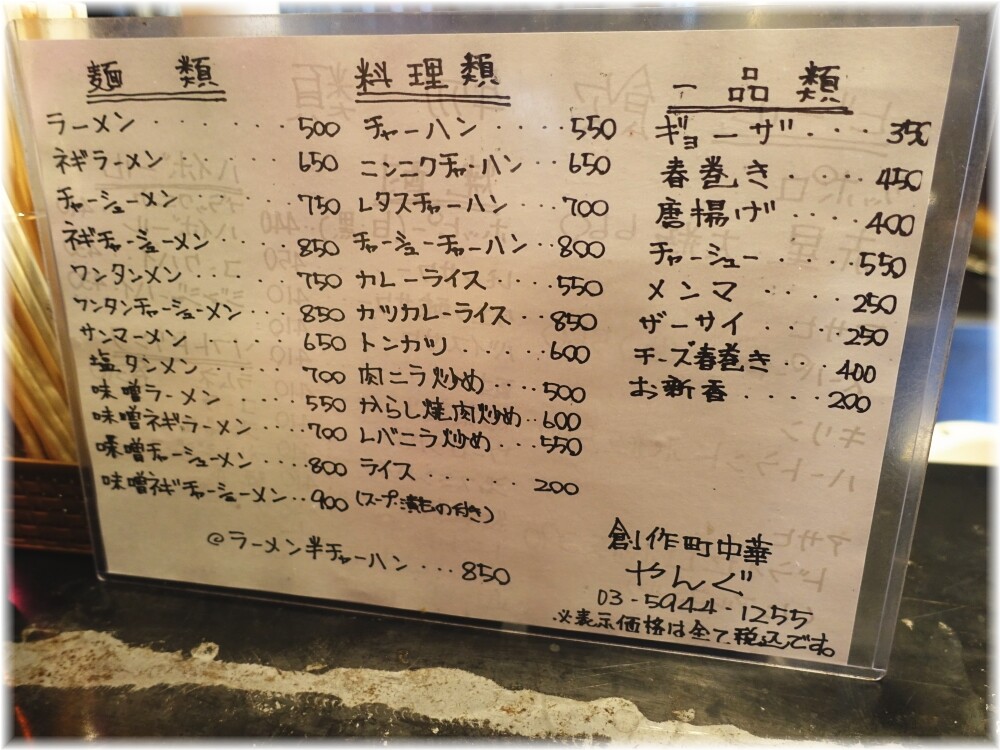 麺 類
ラーメン ・・・・・・・ 500
ネギラーメン ・・・・・ 650
チャーシューメン ・・・・ 750
ネギチャーシューメン ・・・ 850
ワンタンメン ・・・・ 750
ワンタンチャーシューメン ・・・ 850
サンマーメン ・・・・・ 650
塩タンメン ・・・・・ 700
味噌ラーメン ・・・・ 550
味噌ネギラーメン ・・・ 700
味噌チャーシューメン ・・・・ 800
味噌ネギチャーシューメン ・・ 900
@ラーメン半チャーハン ・・・ 850
料理類
チャーハン ・・・・ 550
ニンニクチャーハン ・・・ 650
レタスチャーハン ・・・ 700
チャーシューチャーハン ・・ 800
カレーライス ・・・・ 550
カツカレーライス ・・ 850
トンカツ ・・・・・ 600
肉ニラ炒め ・・・ 500
からし焼肉炒め ・・ 600
レバニラ炒め ・・・ 550
ライス ・・・・・ 200
(スープ・漬もの付き)
一品類
ギョーザ ・・・ 350
春巻き ・・・・ 450
唐揚げ ・・・・ 400
チャーシュー ・・・・ 550
メンマ ・・・・ 250
ザーサイ ・・・ 250
チーズ春巻き ・・・ 400
お新香 ・・・・ 200
創作町中華
やんぐ
03-5944-1255
※表示価格は全て税込です。